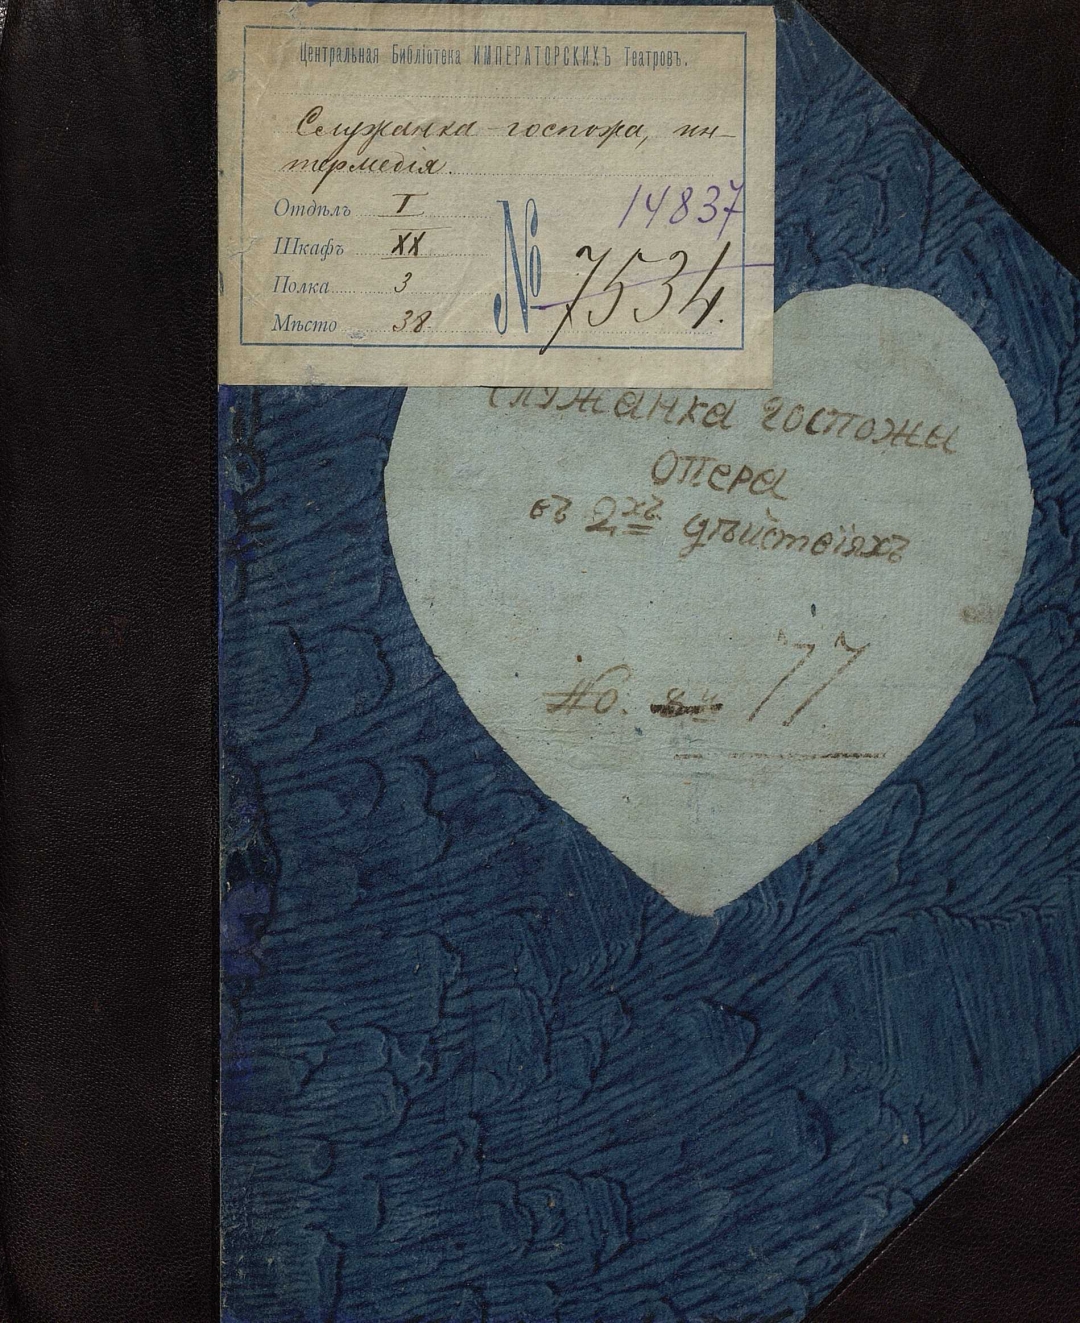 Центральная Библіотека ИМПЕРАТОРСКИХЪ Театровъ.
Служанка-госпожа, ин-
термедія.
Отдѣлъ I
Шкафъ XX
Полка 3
Мѣсто 38.
14837
№ 7534.
Служанка госпожы
Опера
въ 2хъ дѣйствіяхъ
No. 77